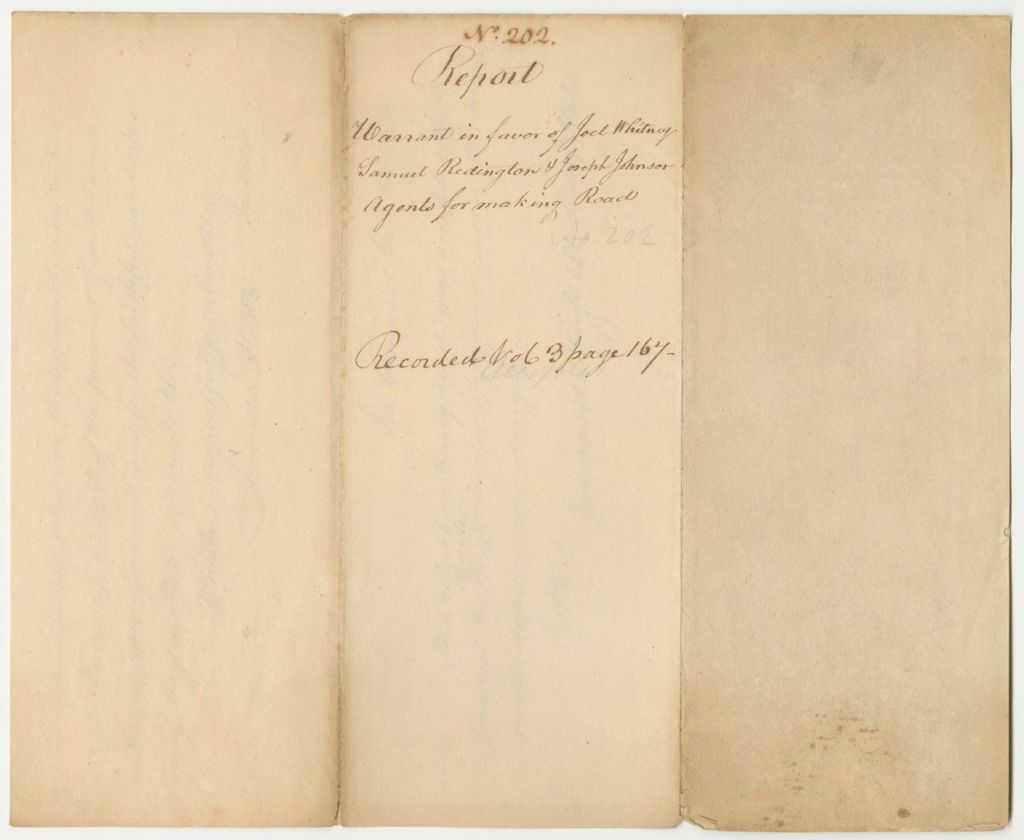 No. 202.
Report
Warrant in favor of Joel Whitney
Samuel Redington & Joseph Johnson
Agents for making Road
No. 202
Recorded Vol 3 page 167-